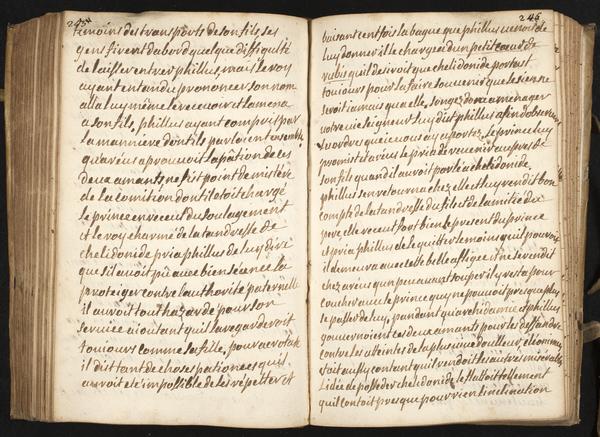 245
temoins des transports de son fils, ses
gens firent d'abord quelque difficulté
de laisser entrer phillus, mais le roy
ayant entendu prononcer son nom
alla luy même le recevoir et la mena
a son fils, phillus ayant compris par
la maniere dont ils parloient ensemble
qu'aréus aprouvoit la pation de ces
deux amants, ne fit point de mistere
de la comition dont il etoit chargé
le prince en receut du soulagement
et le roy charmé de la tandresse de
chelidonide pria phillus de luy dire
que s'il avoit pû avec bienséence la
proteiger contre l'authorité paternelle
il auroit tout hazardé pour son
service aioutant qu'il la regarderoit
toujours comme sa fille, pour acrotate
il dit tant de choses pationées qu'il
auroit eté impossible de les répetter et
246
baisant cent fois la bague que phillus venoit de
luy donner il le chargea d'un petit de
rubis qu'il desiroit que chelidonide portast
toujours pour la faire souvenir que le sien ne
seroit iamais qu'a elle, songez donc a menager
votre vie seigneur luy dit phillus afin d'observer
les ordres que ie vous ay aportés, le prince luy
promist et aréus le pria de revenir aupres de
son fils quand il auroit parlé a chelidonide,
phillus s'en retourna chez elle et luy rendit bon
compte de la tandresse du fils et de l'amitié du
pere, elle receut fort bien le present du prince
et pria phillus de le quitter le moins qu'il pouroit
il demeura avec cette belle afligée et ne se rendit
chez aréus qu'un peu avant souper il y resta pour
coucher avec le prince qui ne pouvoit presque plus
se passer de luy, pandant qu'archidamie et phillus
gouvernoient ces deux amants pour les deffandre
contre les atteintes de la plus rude douleur, cléonime
etoit aussy contant qu'il rendoit les autres miserables
l'idée de posseder chelidonide le flattoit tellement
qu'il contoit presque pour rien l'inclination